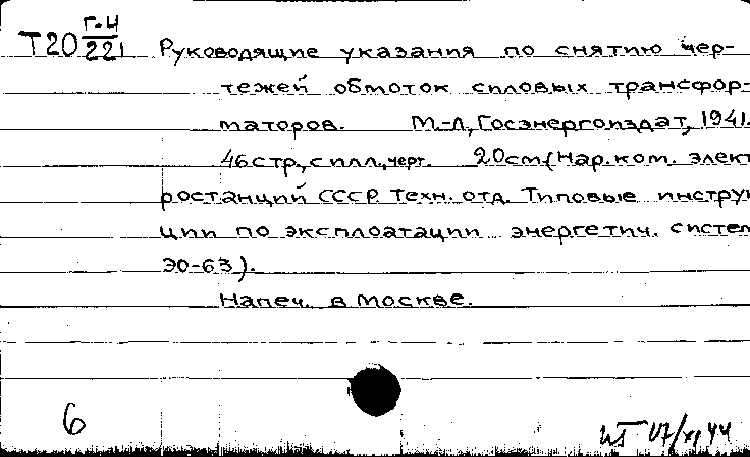 Т20 Г-Ч/221 Руководящие указания по снятию чер-
тежей обмоток силовых трансфор-
маторов. М.-Л., Госэнергоиздат, 1941.
46 стр., с илл., черт. 20 см. (Нар. ком. элект
ростанций СССР. Техн. отд. Типовые инструк
ции по эксплоатации энергетич. систем
ЭО-63).
Напеч. в Москве.
6